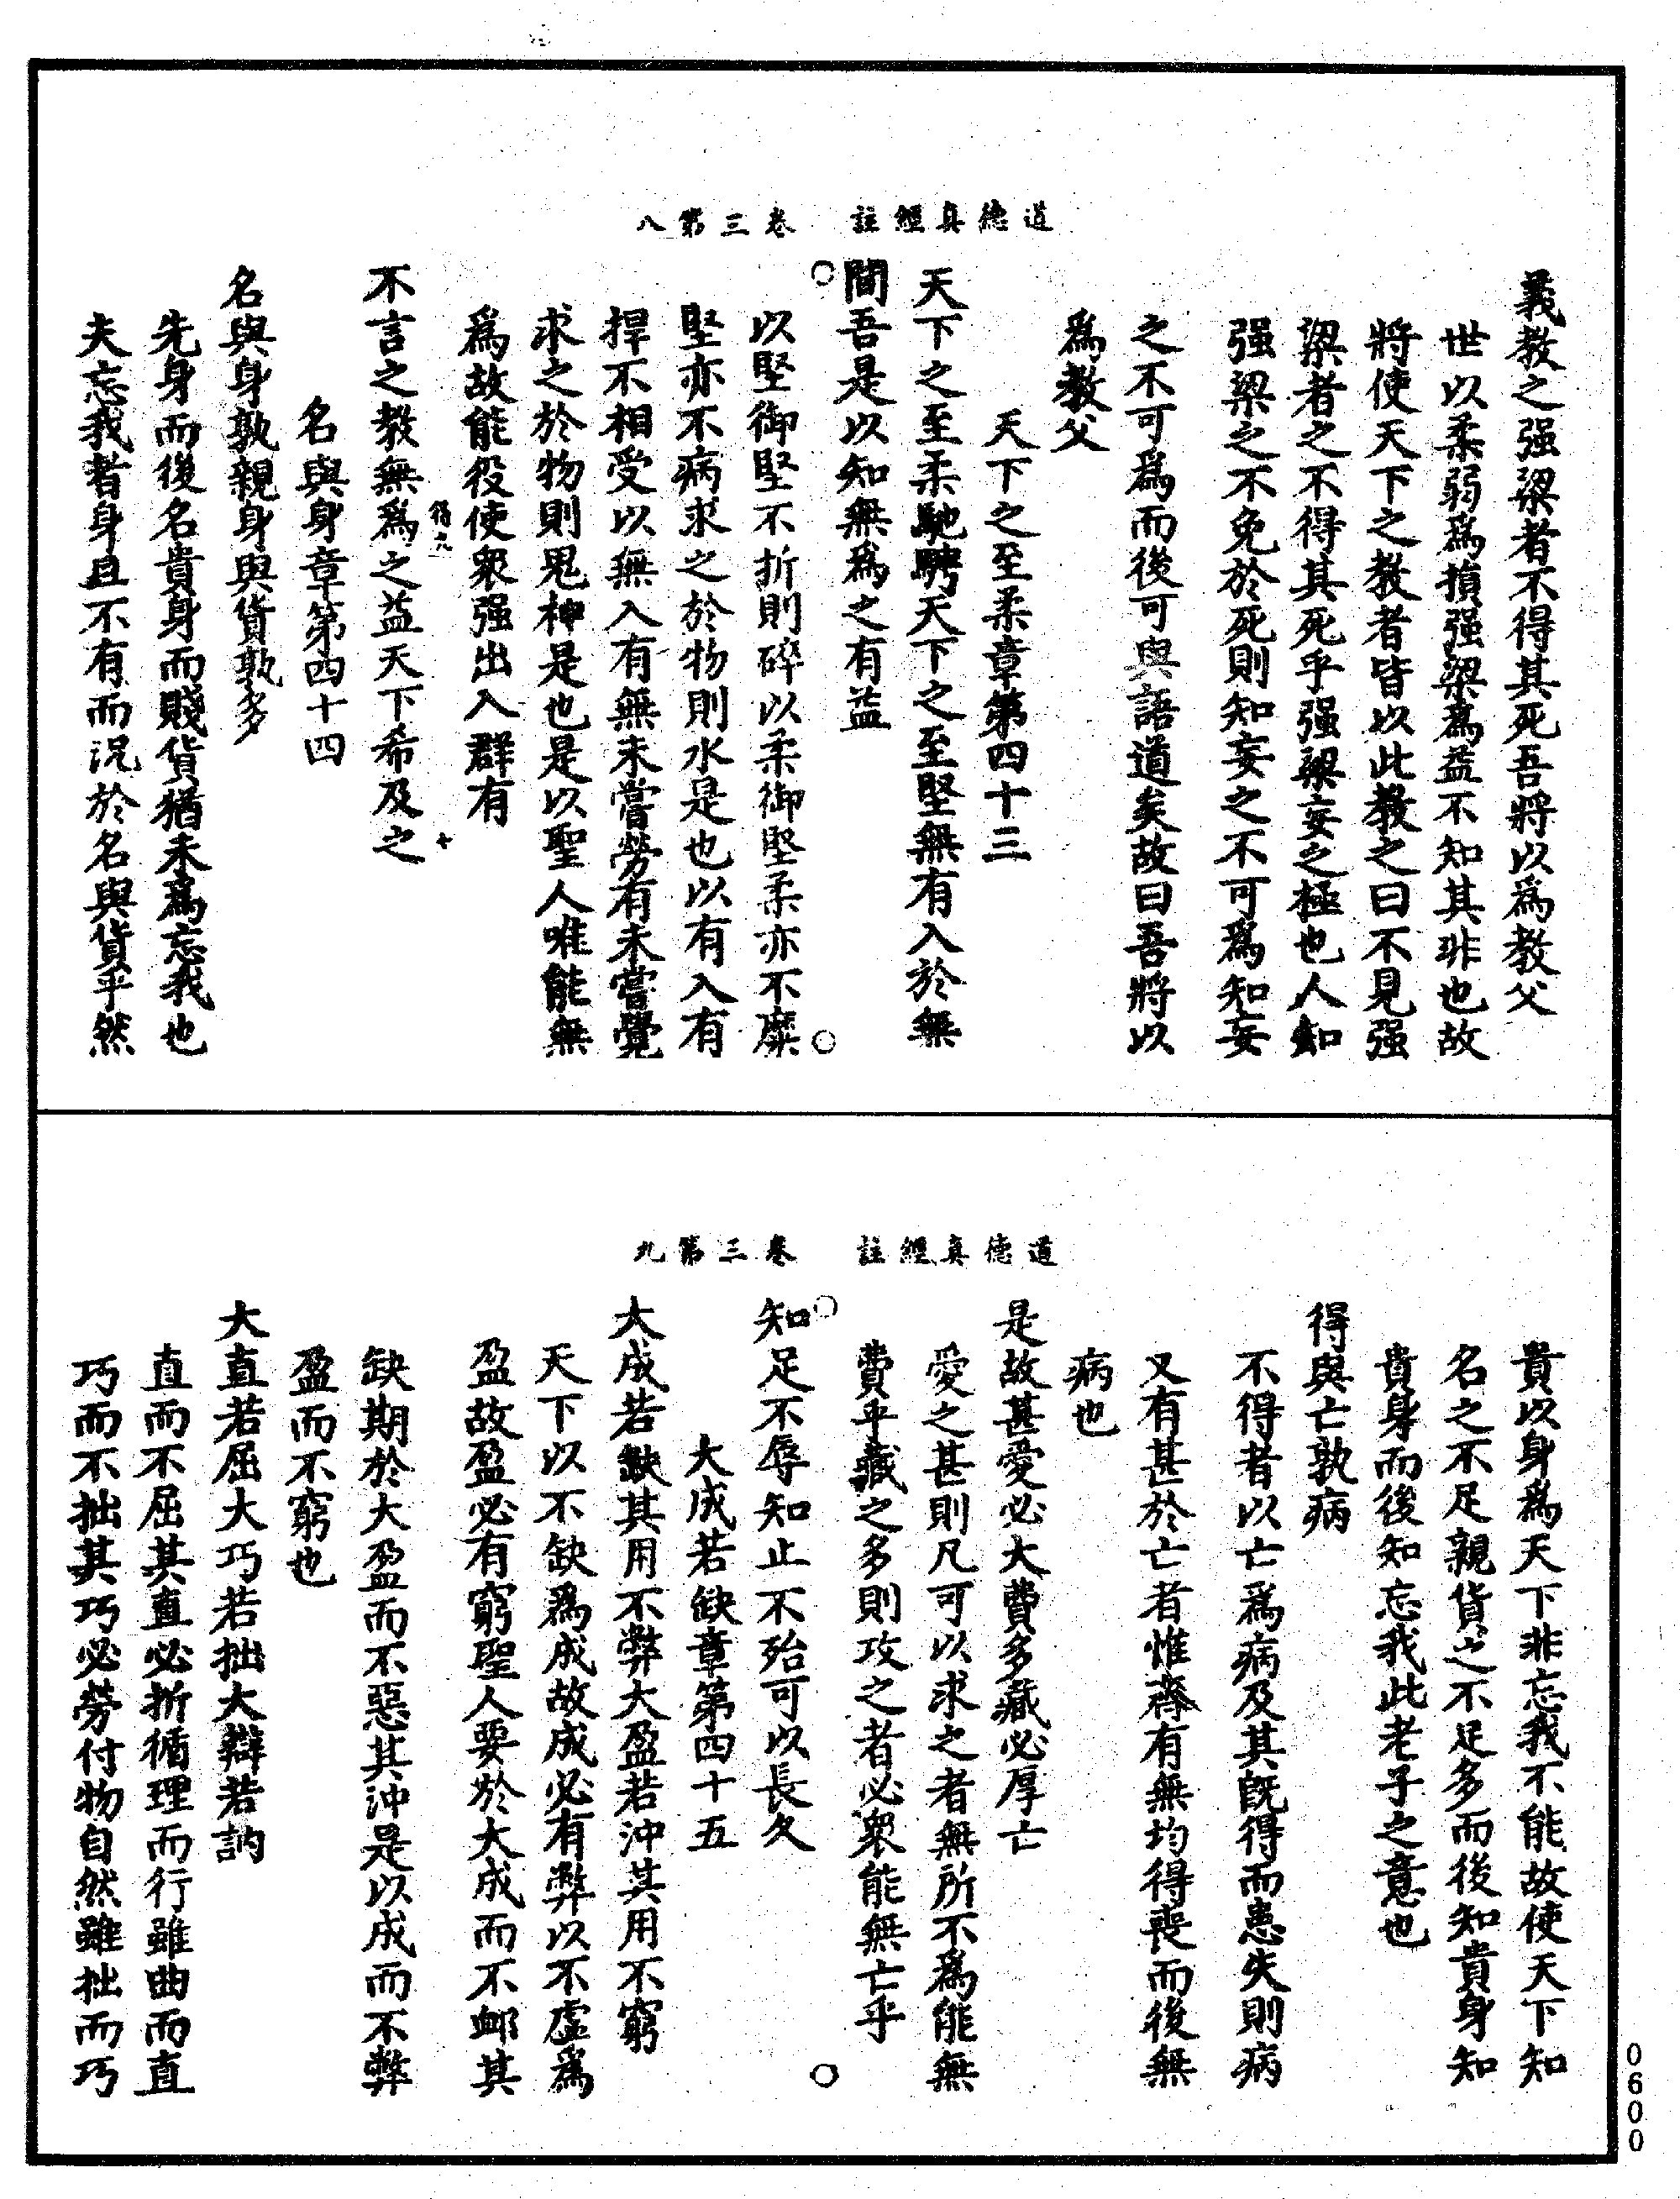 道德真經註　卷三第八
義教之强梁者不得其死吾將以為教父
世以柔弱為損强梁為益不知其非也故
將使天下之教者皆以此教之曰不見强
梁者之不得其死乎强梁妄之極也人知
强梁之不免於死則知妄之不可為知妄
之不可為而後可與語道矣故曰吾將以
為教父
天下之至柔章第四十三
天下之至柔馳騁天下之至堅無有入於無
間吾是以知無為之有益
以堅御堅不折則碎以柔御堅柔亦不靡
堅亦不病求之於物則水是也以有入有
捍不相受以無入有無未嘗勞有未嘗覺
求之於物則鬼神是也是以聖人唯能無
為故能役使衆强出入群有
不言之教無為之益天下希及之
名與身章第四十四
名與身孰親身與貨孰多
先身而後名貴身而賤貨猶未為忘我也
夫忘我者身且不有而況於名與貨乎然
道德真經註　卷三第九
貴以身為天下非忘我不能故使天下知
名之不足親貨之不足多而後知貴身知
貴身而後知忘我此老子之意也
得與亡孰病
不得者以亡為病及其旣得而患失則病
又有甚於亡者惟齊有無均得喪而後無
病也
是故甚愛必大費多藏必厚亡
愛之甚則凡可以求之者無所不為能無
費乎藏之多則攻之者必衆能無亡乎
知足不辱知止不殆可以長久
大成若缺章第四十五
大成若缺其用不弊大盈若沖其用不窮
天下以不缺為成故成必有弊以不虛為
盈故盈必有窮聖人要於大成而不卹其
缺期於大盈而不惡其沖是以成而不弊
盈而不窮也
大直若屈大巧若拙大辯若訥
直而不屈其直必折循理而行雖曲而直
巧而不拙其巧必勞付物自然雖拙而巧
0600